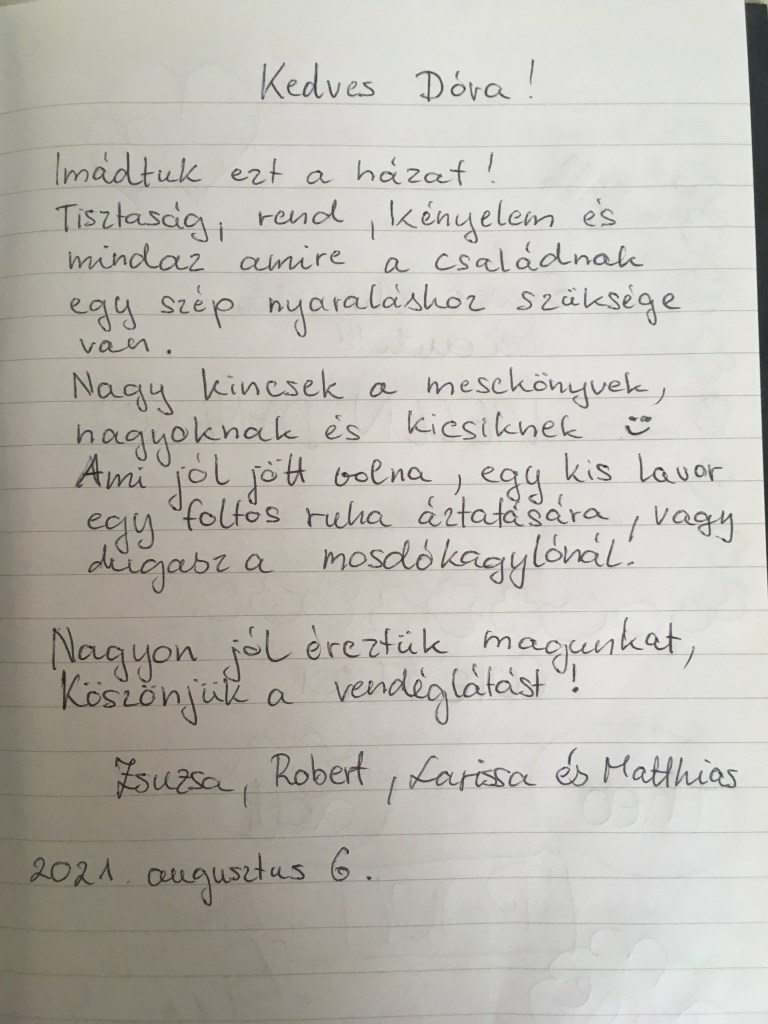 Kedves Dóra!
Imádtuk ezt a házat!
Tisztaság, rend, kényelem és
mindaz amire a családnak
egy szép nyaraláshoz szüksége
van.
Nagy kincsek a mesekönyvek,
nagyoknak és kicsiknek
Ami jól jött volna, egy kis lavor
egy foltos ruha áztatására, vagy
dugasz a mosdókagylónál!
Nagyon jól éreztük magunkat,
Köszönjük a vendéglátást!
Zsuzsa, Robert, Larissa és Matthias
2021. augusztus 6.